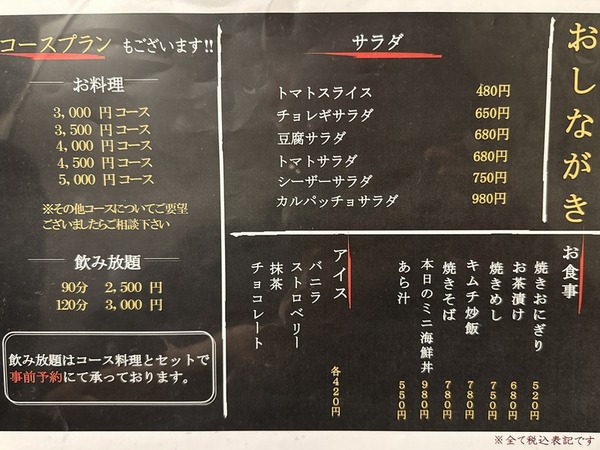 おしながき
コースプラン もございます!!
お料理
3,000 円コース
3,500 円コース
4,000 円コース
4,500 円コース
5,000 円コース
※その他コースについてご要望
ございましたらご相談下さい
飲み放題
90分 2,500 円
120分 3,000 円
飲み放題はコース料理とセットで
事前予約にて承っております。
サラダ
トマトスライス 480円
チョレギサラダ 650円
豆腐サラダ 680円
トマトサラダ 680円
シーザーサラダ 750円
カルパッチョサラダ 980円
お食事
焼きおにぎり 520円
お茶漬け 680円
焼きめし 750円
キムチ炒飯 780円
焼きそば 780円
本日のミニ海鮮丼 980円
あら汁 550円
アイス
バニラ
ストロベリー
抹茶
チョコレート
各420円
※全て税込表記です